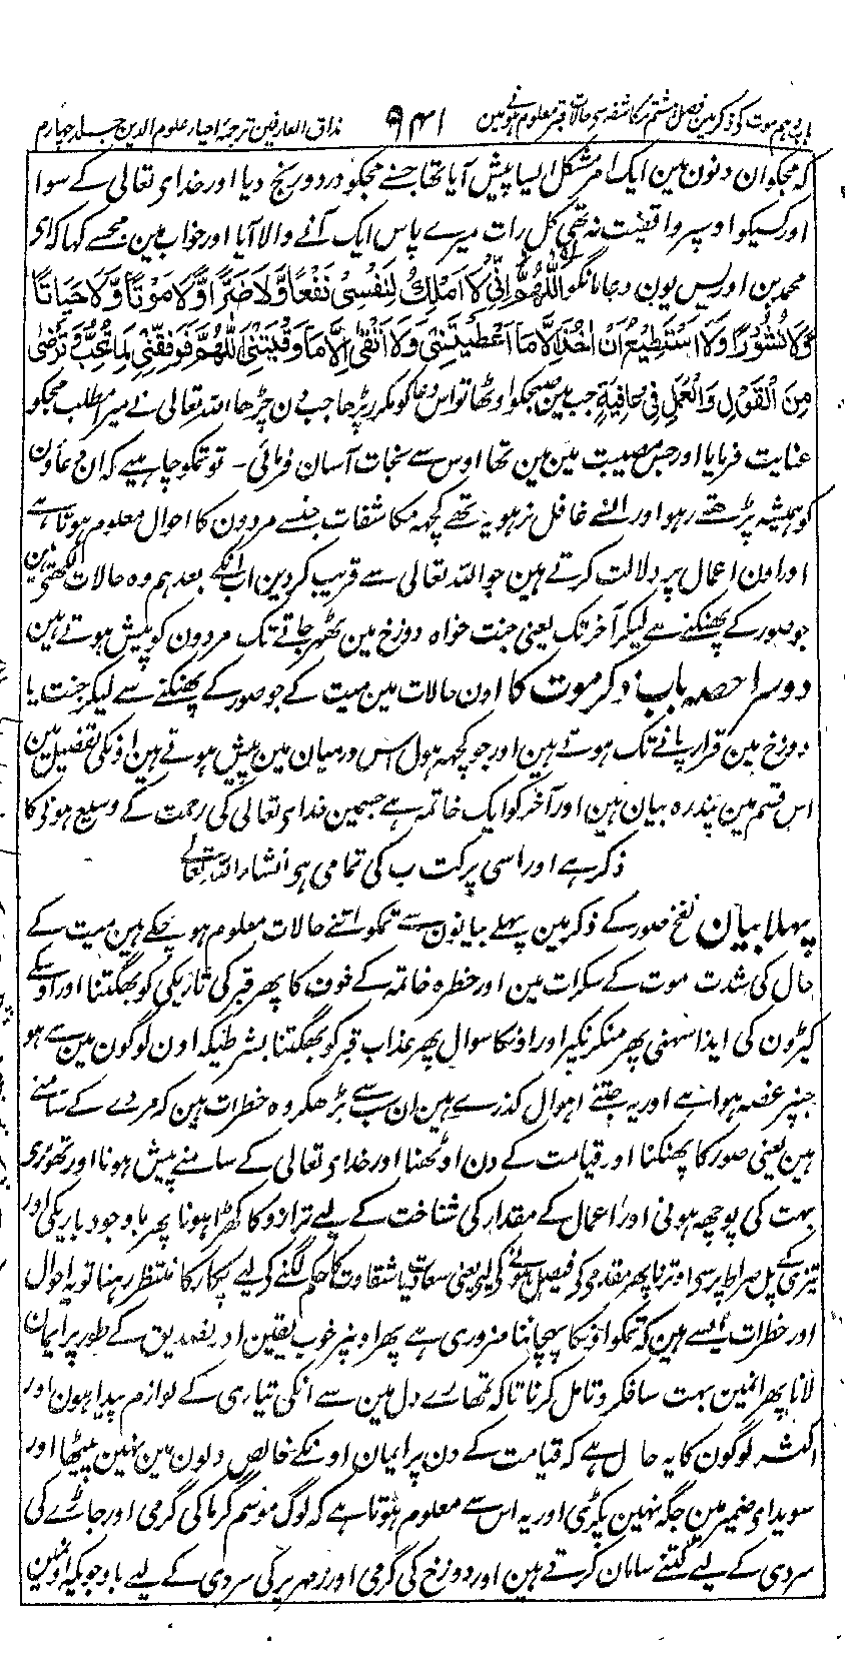 باب دہم موت کے ذکر مین فصل ہشتم مکاشفہ سے حالات قبر معلوم ہونے مین ۹۴۱ مذاق العارفین ترجمہ احیاء علوم الدین جلد چہارم
کہ مجکو ان دنون مین ایک امر مشکل ایسا پیش آیا تھا جسنے مجکو درد و رنج دیا اور خدای تعالی کے سوا
اور کسیکو اوسپر واقفیت نہ تھی کل رات میرے پاس ایک آنے والا آیا اور خواب مین مجسے کہا کہ ای
محمد بن ادریس یون دعا مانگو اَللّٰهُمَّ اِنِّیْ لَا اَمْلِكُ لِنَفْسِیْ نَفْعًا وَّلَا ضَرًّا وَّلَا مَوْتًا وَّلَا حَیَاتًا
وَّلَا نُشُوْرًا وَلَا اَسْتَطِیْعُ اَنْ اٰخُذَ اِلَّا مَا اَعْطَیْتَنِیْ وَلَا اَتَّقِیْ اِلَّا مَا وَقَیْتَنِیْ اَللّٰهُمَّ فَوَفِّقْنِیْ لِمَا تُحِبُّ وَتَرْضٰی
مِنَ الْقَوْلِ وَالْعَمَلِ فِیْ عَافِیَةٍ جب مین صبحکو اوٹھا تو اس دعا کو مکرر پڑھا جب دن چڑھا اللہ تعالی نے میرا مطلب مجکو
عنایت فرمایا اور جس مصیبت مین مین تھا اوس سے نجات آسان فرمائی ۔ تو تمکو چاہیے کہ ان دعاؤن
کو ہمیشہ پڑھتے رہو اور انسے غافل نہ ہو یہ تھے کچھ مکاشفات جنسے مردون کا احوال معلوم ہوتا ہے
اور اون اعمال پر دلالت کرتے ہین جو اللہ تعالی سے قریب کر دین اب انکے بعد ہم وہ حالات لکھتے ہین
جو صور کے پھنکنے سے لیکر آخر تک یعنی جنت خواہ دوزخ مین ٹھہر جانے تک مردون کو پیش ہوتے ہین
دوسرا حصہ باب ذکر موت کا اون حالات مین میت کے جو صور کے پھنکنے سے لیکر جنت یا
دوزخ مین قرار پانے تک ہوتے ہین اور جو کچھ ہول اس درمیان مین پیش ہوتے ہین اونکی تفصیل مین
اس قسم مین پندرہ بیان ہین اور آخر کو ایک خاتمہ ہے جسمین خدای تعالی کی رحمت کے وسیع ہونے کا
ذکر ہے اور اسی پر کتاب کی تمامی ہو انشاء اللہ تعالے
پہلا بیان نفخ صور کے ذکر مین پہلے بیانون سے تمکو اتنے حالات معلوم ہو چکے ہین میت کے
حال کی شدت موت کے سکرات مین اور خطرہ خاتمہ کے خوف کا پھر قبر کی تاریکی کو بھگتنا اور اوسکے
کیڑون کی ایذا سہنی پھر منکر نکیر اور اونکا سوال پھر عذاب قبر کو بھگتنا بشرطیکہ اون لوگون مین سے ہو
جنپر غصہ ہوا ہے اور یہ جتنے اہوال گذرے ہین ان سب سے بڑھکر وہ خطرات ہین کہ مردے کے سامنے
ہین یعنی صور کا پھنکنا اور قیامت کے دن اوٹھنا اور خدای تعالی کے سامنے پیش ہونا اور تھوڑی
بہت کی پوچھ ہونی اور اعمال کے مقدار کی شناخت کے لیے ترازو کا کھڑا ہونا پھر باوجود باریکی اور
تیزی کے پل صراط پر سے اوترنا پھر مقدمہ کی فیصل ہونے کے لیے یعنی سعادت یا شقاوت کا حکم لگنے کے لیے پکار کا منتظر رہنا تو یہ احوال
اور خطرات ایسے ہین کہ تمکو اونکا پہچاننا ضروری ہے پھر اونپر خوب یقین اور تصدیق کے طور پر ایمان
لانا پھر انمین بہت سا فکر و تامل کرنا تاکہ تمھارے دل مین سے انکی تیاری کے لوازم پیدا ہون اور
اکثر لوگون کا یہ حال ہے کہ قیامت کے دن پر ایمان اونکے خالص دلون مین نہین پیٹھا اور
سویدای ضمیر مین جگہ نہین پکڑی اور یہ اس سے معلوم ہوتا ہے کہ لوگ موسم گرما کی گرمی اور جاڑے کی
سردی کے لیے کتنے سامان کرتے ہین اور دوزخ کی گرمی اور زمہریر کی سردی کے لیے باوجودیکہ اونمین